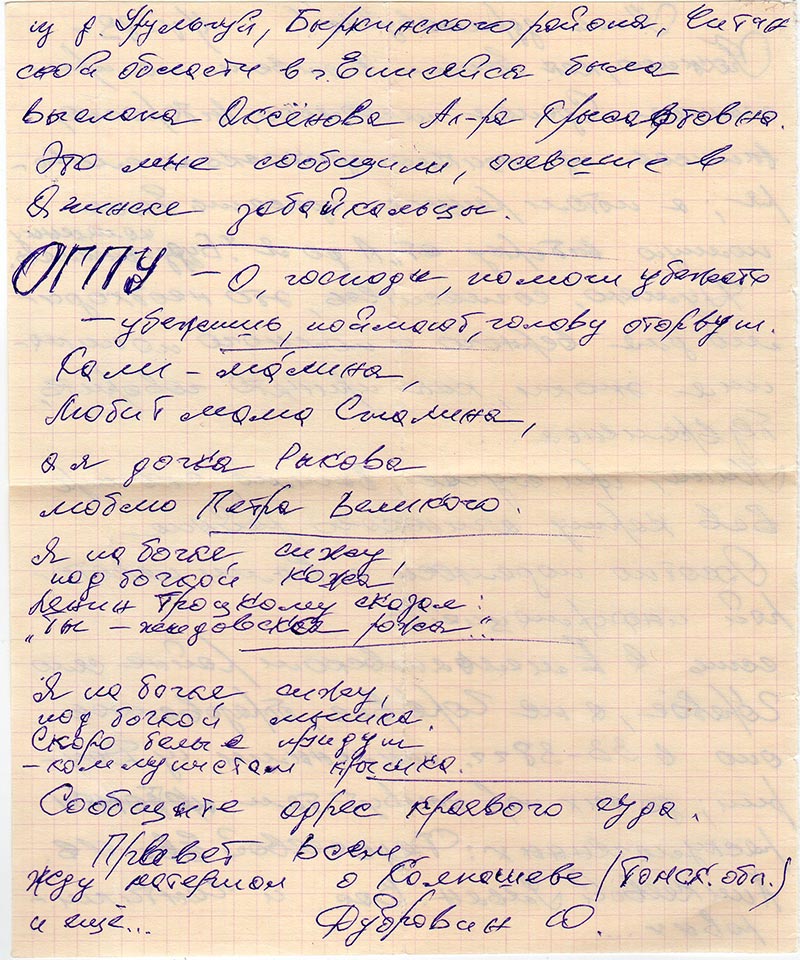 из д. Урульгуй, Быркинского района, Читин
ской области в г. Енисейск была
выслана Аксёнова Ал-ра Хрисанфовна.
Это мне сообщили, осевшие в
Ачинске забайкальцы.
ОГПУ – О, господи, помоги убежать
– убежишь, поймают, голову оторвут.
Кали – малина,
Любит мама Сталина,
а я дочка Рыкова
люблю Петра Великого.
Я на бочке сижу,
под бочкой кожа,
Ленин Троцкому сказал:
"Ты – жидовская рожа..."
Я на бочке сижу,
под бочкой мышка.
Скоро белые придут
– коммунистам крышка.
Сообщите адрес краевого суда.
Привет Всем
жду материал о Колпашеве (Томск. обл.)
и ещё... Дубровин Ю.